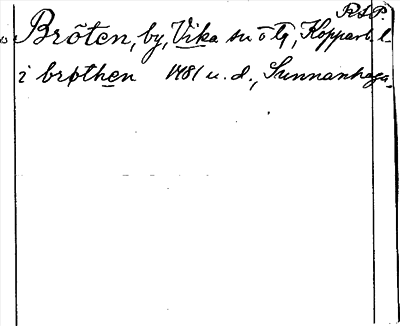 R.S.P.
Bröten, by, Vika sn o tg, Kopparb. l.
i brøthen 1481 u. d., Sunnanhaga.